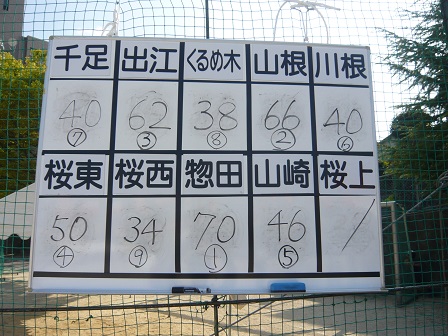 千足 出江 くるめ木 山根 川根
40 62 38 66 40
⑦ ③ ⑧ ② ⑥
桜東 桜西 惣田 山崎 桜上
50 34 70 46 /
④ ⑨ ① ⑤